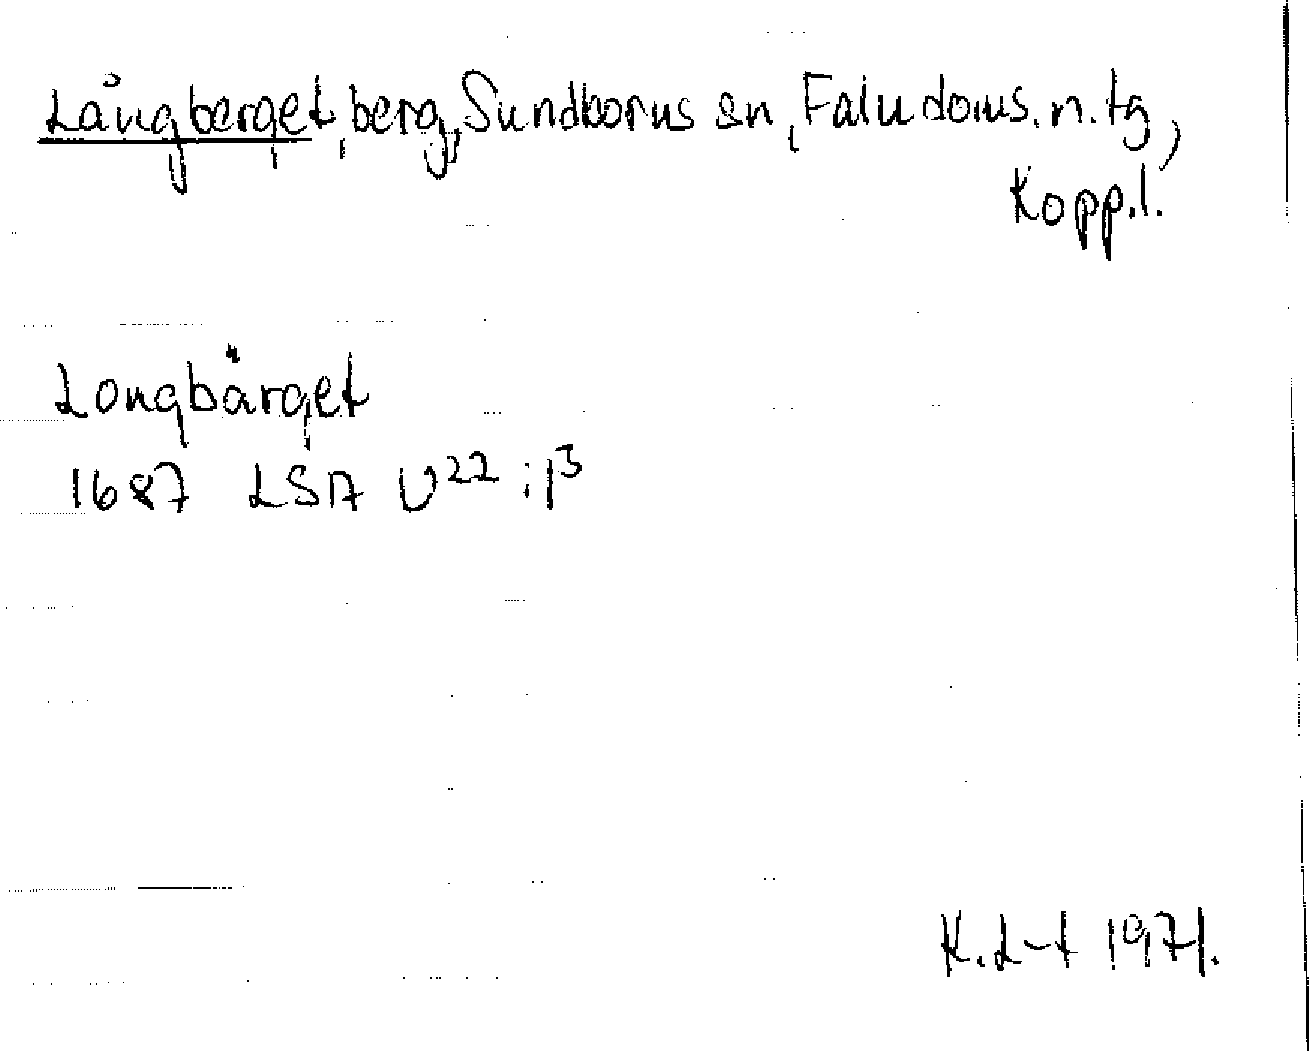 Långberget, berg, Sundborns sn, Falu doms. n. tg,
Kopp.l.
Longbärget
1687 LSA U²² : 1³
K. L-t 1971.